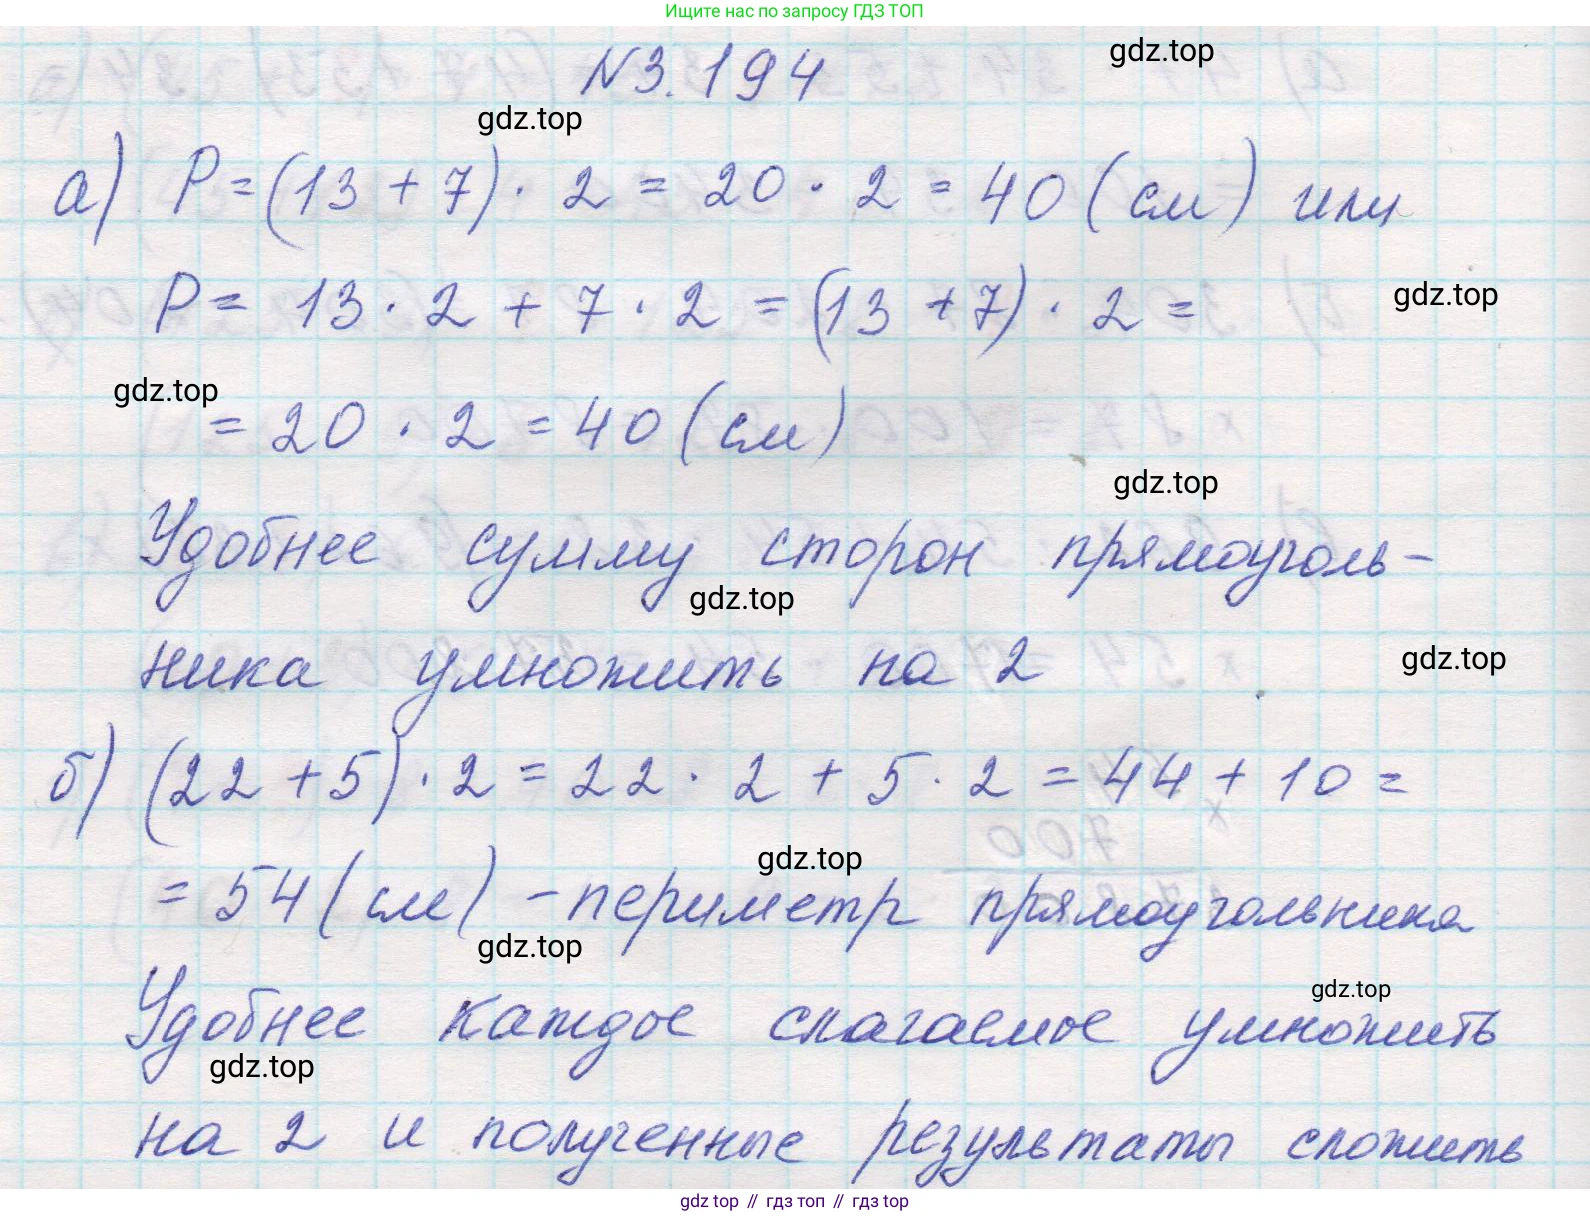 Ищите нас по запросу ГДЗ ТОП
N3.194
gdz.top
gdz.top
а) P = (13 + 7) · 2 = 20 · 2 = 40 (см) или
P = 13 · 2 + 7 · 2 = (13 + 7) · 2 =
gdz.top
gdz.top
= 20 · 2 = 40 (см)
gdz.top
Удобнее сумму сторон прямоуголь-
gdz.top
ника умножить на 2
gdz.top
б) (22 + 5) · 2 = 22 · 2 + 5 · 2 = 44 + 10 =
gdz.top
= 54 (см) - периметр прямоугольника
gdz.top
gdz.top
Удобнее каждое слагаемое умножить
gdz.top
на 2 и полученные результаты сложить
gdz top // гдз топ // гдз top